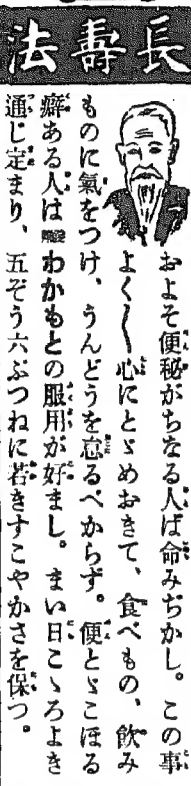 長壽法
およそ便秘がちなる人は命みぢかし。この事
よく〱心にとゞめおきて、食べもの、飮み
ものに氣をつけ、うんどうを怠るべからず。便とゞこほる
癖ある人はわかもとの服用が好まし。まい日こゝろよき
通じ定まり、五ぞう六ぷつねに若きすこやかさを保つ。